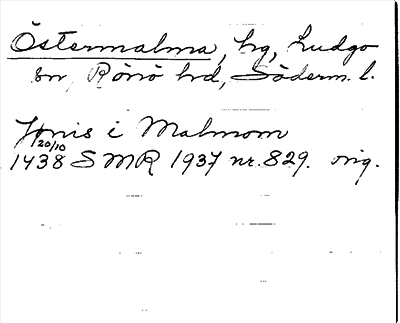 Östermalma, hg, Ludgo
sn, Rönö hd, Söderm. l.
Jönis i Malmom
20/10
1438 SMR 1937 nr. 829. orig.